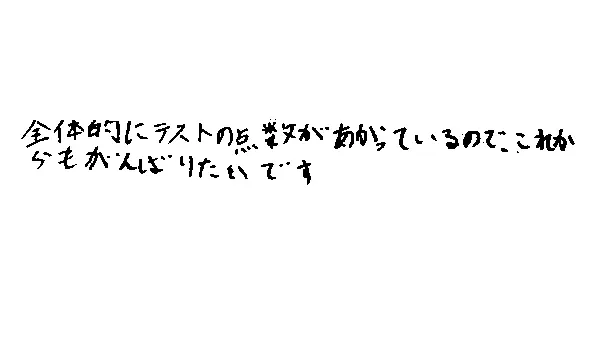 全体的にテストの点数があがっているので、これか
らもがんばりたいです